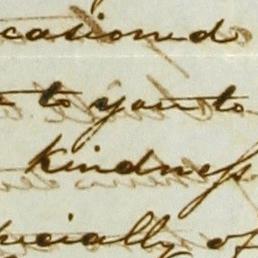 casioned
t to you to
kindness
pecially of